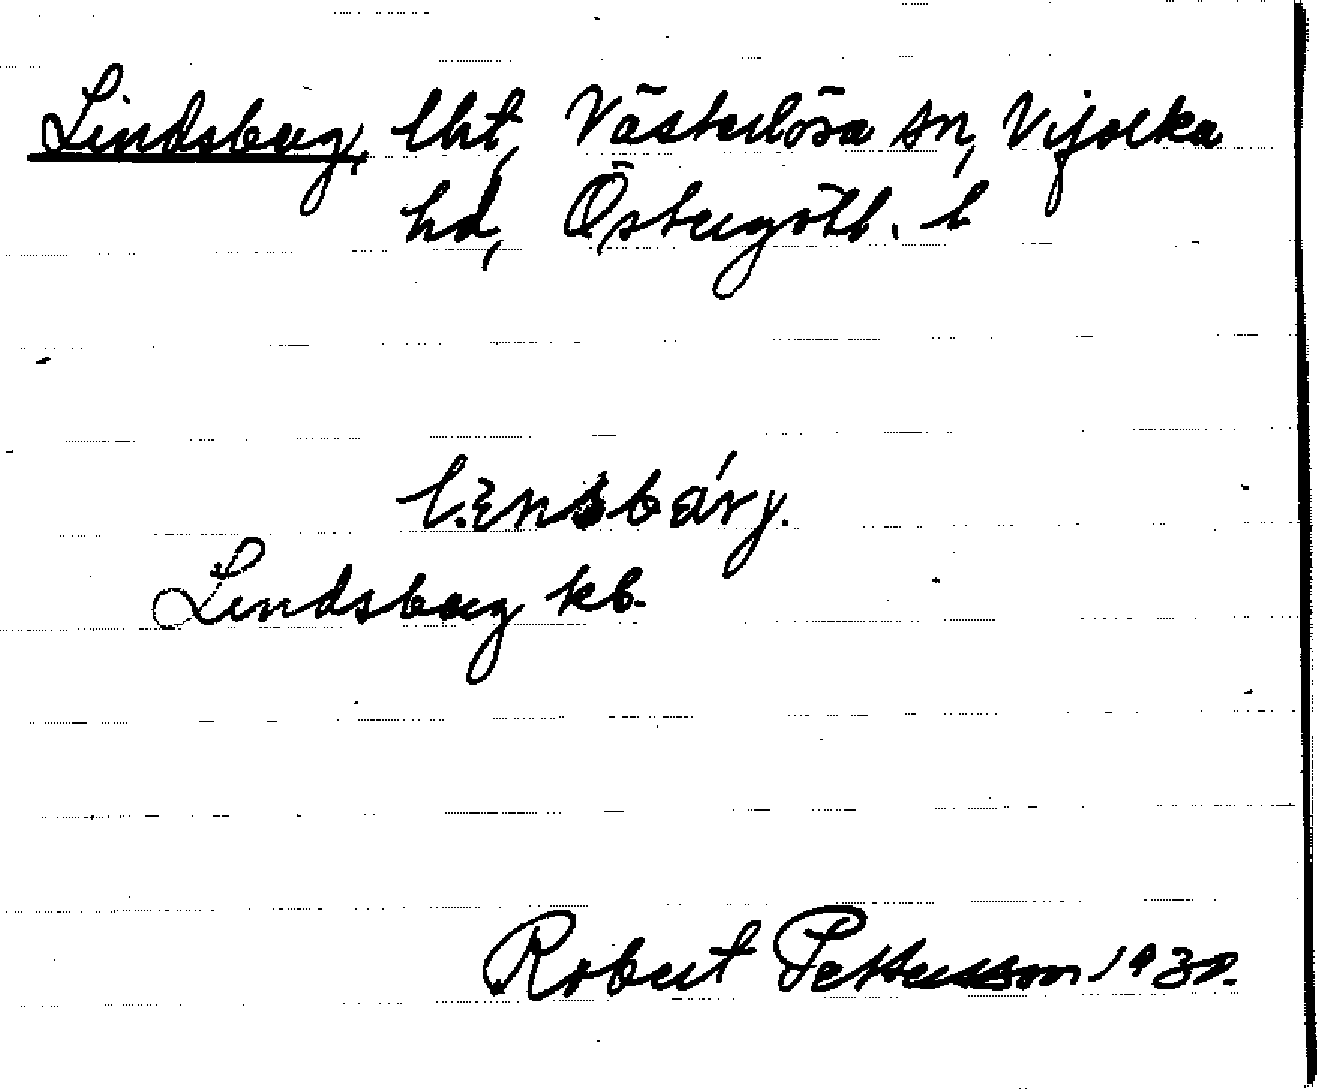 Lindsberg, lht, Västerlösa sn, Vifolka
hd, Östergötl. l
Lindsberg kb.
Robert Pettersson